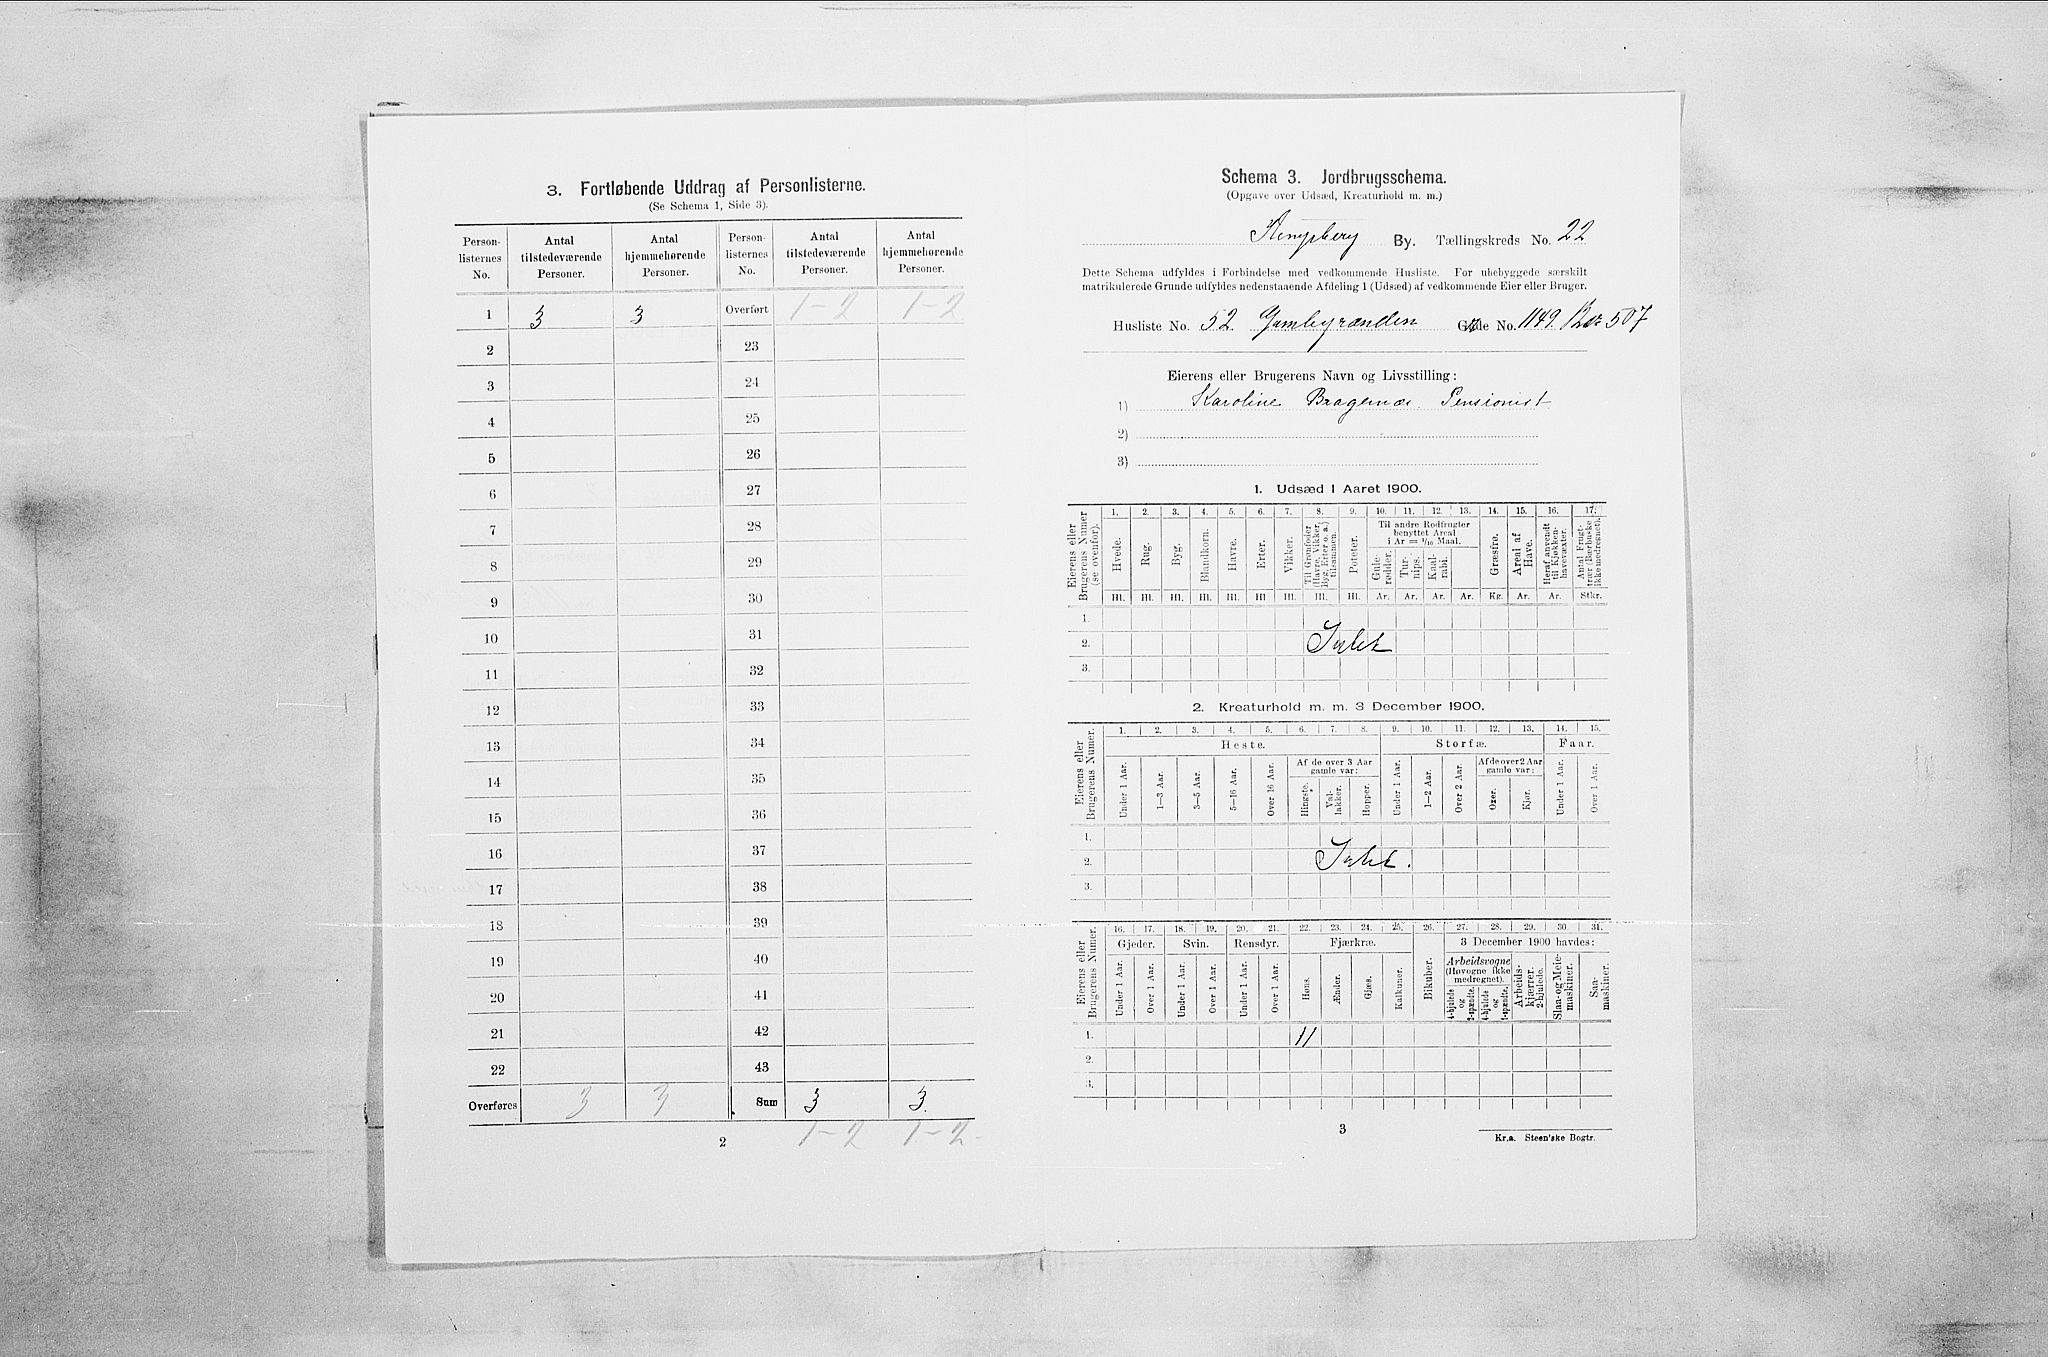 3. Fortløbende Uddrag af Personlisterne.
(Se Schema 1, Side 3).
Person-listernes No. | Antal tilstedeværende Personer. | Antal hjemmehørende Personer. | Person-listernes No. | Antal tilstedeværende Personer. | Antal hjemmehørende Personer.
1 | 3 | 3 | Overført | 1-2 | 1-2
2 | 23
3 | 24
4 | 25
5 | 26
6 | 27
7 | 28
8 | 29
9 | 30
10 | 31
11 | 32
12 | 33
13 | 34
14 | 35
15 | 36
16 | 37
17 | 38
18 | 39
19 | 40
20 | 41
21 | 42
22 | 43
Overføres | 3 | 3 | Sum | 3 | 3.
1-2 1-2-
2
Schema 3. Jordbrugsschema.
(Opgave over Udsæd, Kreaturhold m. m.)
Kongsberg By. Tællingskreds No. 22
Dette Schema udfyldes i Forbindelse med vedkommende Husliste. For ubebyggede særskilt
matrikulerede Grunde udfyldes nedenstaaende Afdeling 1 (Udsæd) af vedkommende Eier eller Bruger.
Husliste No. 52. Gambyrænden No. 1149. 507
Eierens eller Brugerens Navn og Livsstilling:
1) Karoline Bragernæs. Pensionist
2)
3)
1. Udsæd i Aaret 1900.
Eierens eller Brugerens Numer (se ovenfor).
1. 2. 3. 4. 5. 6. 7. 8. 9. 10. 11. 12. 13. 14. 15. 16. 17.
Hvede. Rug. Byg. Blandkorn. Havre. Erter. Vikker. Til Grønfoder (Havre, Vikker, Byg, Erter o. a.) tilsammen. Poteter.
Til andre Rodfrugter benyttet Areal i Ar = 1/10 Maal.
Gule-rødder. Tur-nips. Kaal-rabi. Græsfrø. Areal af Have. Heraf anvendt til Kjøkken-havevæxter. Antal Frugt-trær (Bærbuske ikke medregnet).
Hl. Hl. Hl. Hl. Hl. Hl. Hl. Hl. Hl. Ar. Ar. Ar. Ar. Kg. Ar. Ar. Stkr.
1.
2. Intet
3.
2. Kreaturhold m. m. 3 December 1900.
Eierens eller Brugerens Numer.
1. 2. 3. 4. 5. 6. 7. 8. 9. 10. 11. 12. 13. 14. 15.
Heste. Storfæ. Faar.
Af de over 3 Aar gamle var: Af de over 2 Aar gamle var:
Under 1 Aar. 1—3 Aar. 3—5 Aar. 5—16 Aar. Over 16 Aar. Hingste. Val-lakker. Hopper. Under 1 Aar. 1—2 Aar. Over 2 Aar. Oxer. Kjør. Under 1 Aar. Over 1 Aar.
1.
2. Intet.
3.
Eierens eller Brugerens Numer.
16. 17. 18. 19. 20. 21. 22. 23. 24. 25. 26. 27. 28. 29. 30. 31.
Gjeder. Svin. Rensdyr. Fjærkræ. Bikuber. 3 December 1900 havdes:
Arbeidsvogne (Høvogne ikke medregnet).
Under 1 Aar. Over 1 Aar. Under 1 Aar. Over 1 Aar. Under 1 Aar. Over 1 Aar. Høns. Ænder. Gjæs. Kalkuner. 4-hjulede og 2-spændte. 4-hjulede og 1-spændte. Arbeids-kjærrer, 2-hjulede. Slaa- og Meie-maskiner. Saa-maskiner.
1. 11
2.
3.
3
Kr.a. Steen'ske Bogtr.